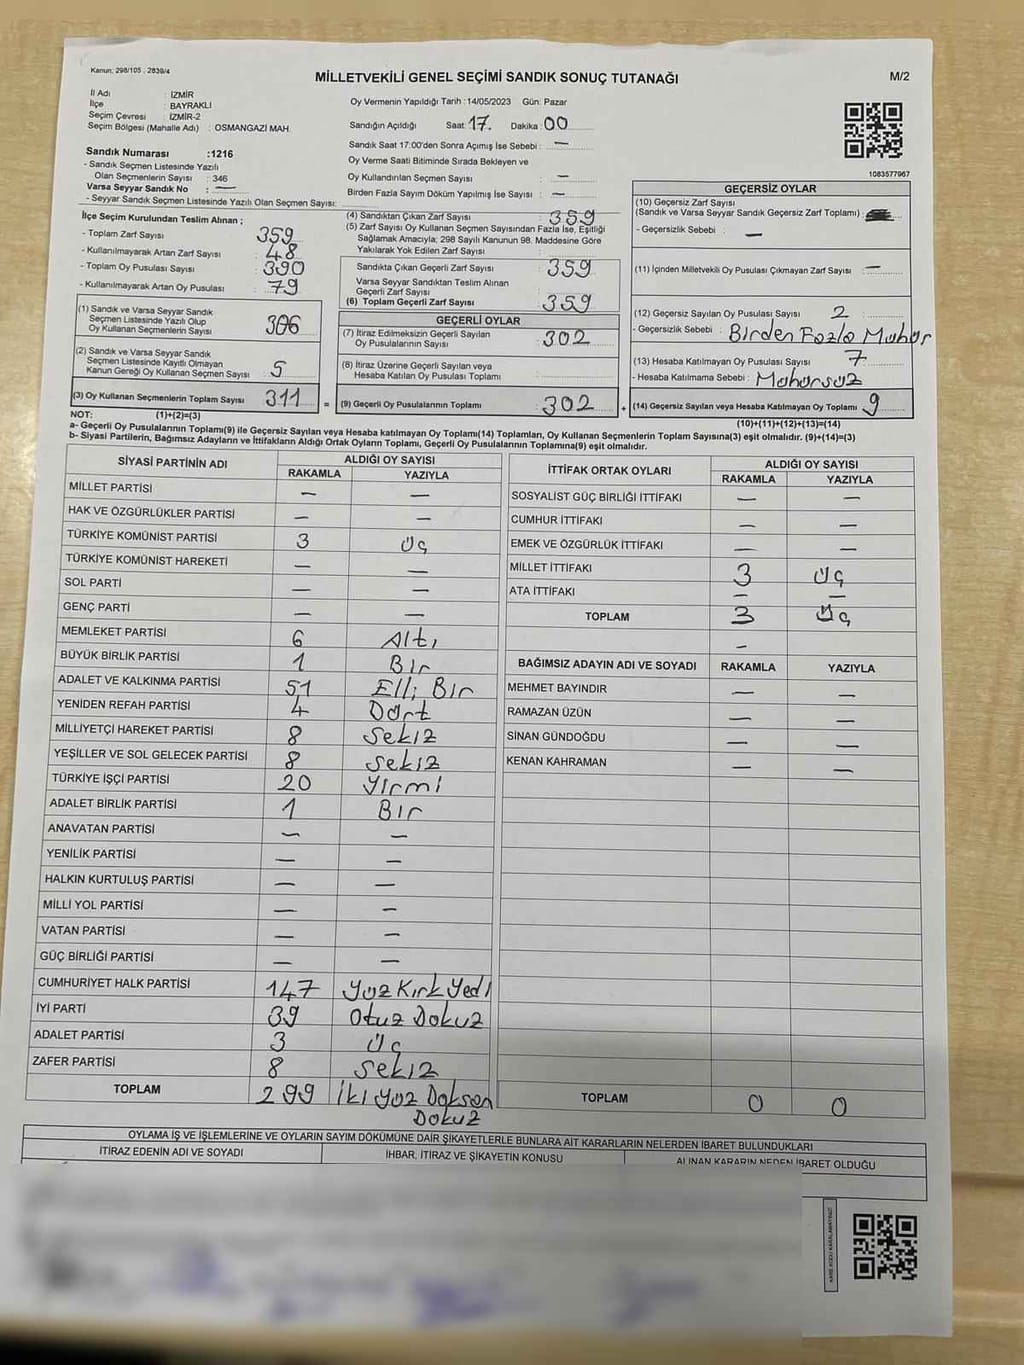 Kanun; 298/105 ; 2839/4
MİLLETVEKİLİ GENEL SEÇİMİ SANDIK SONUÇ TUTANAĞI
M/2
İl Adı : İZMİR
İlçe : BAYRAKLI
Seçim Çevresi : İZMİR-2
Seçim Bölgesi (Mahalle Adı) : OSMANGAZİ MAH.
Oy Vermenin Yapıldığı Tarih : 14/05/2023 Gün: Pazar
Sandığın Açıldığı Saat: 17. Dakika : 00
Sandık Saat 17:00'den Sonra Açımış İse Sebebi : —
Oy Verme Saati Bitiminde Sırada Bekleyen ve
Oy Kullandırılan Seçmen Sayısı : —
Birden Fazla Sayım Döküm Yapılmış İse Sayısı : —
1083577967
Sandık Numarası :1216
- Sandık Seçmen Listesinde Yazılı
Olan Seçmenlerin Sayısı : 346
Varsa Seyyar Sandık No : —
- Seyyar Sandık Seçmen Listesinde Yazılı Olan Seçmen Sayısı:
İlçe Seçim Kurulundan Teslim Alınan ;
- Toplam Zarf Sayısı : 359
- Kullanılmayarak Artan Zarf Sayısı : 48
- Toplam Oy Pusulası Sayısı : 390
- Kullanılmayarak Artan Oy Pusulası : 79
(1) Sandık ve Varsa Seyyar Sandık
Seçmen Listesinde Yazılı Olup
Oy Kullanan Seçmenlerin Sayısı 306
(2) Sandık ve Varsa Seyyar Sandık
Seçmen Listesinde Kayıtlı Olmayan
Kanun Gereği Oy Kullanan Seçmen Sayısı : 5
(3) Oy Kullanan Seçmenlerin Toplam Sayısı 311 =
(4) Sandıktan Çıkan Zarf Sayısı : 359
(5) Zarf Sayısı Oy Kullanan Seçmen Sayısından Fazla İse, Eşitliği
Sağlamak Amacıyla; 298 Sayılı Kanunun 98. Maddesine Göre
Yakılarak Yok Edilen Zarf Sayısı :
Sandıkta Çıkan Geçerli Zarf Sayısı : 359
Varsa Seyyar Sandıktan Teslim Alınan
Geçerli Zarf Sayısı :
(6) Toplam Geçerli Zarf Sayısı : 359
GEÇERLİ OYLAR
(7) İtiraz Edilmeksizin Geçerli Sayılan
Oy Pusulalarının Sayısı : 302
(8) İtiraz Üzerine Geçerli Sayılan veya
Hesaba Katılan Oy Pusulası Toplamı :
(9) Geçerli Oy Pusulalarının Toplamı : 302 +
GEÇERSİZ OYLAR
(10) Geçersiz Zarf Sayısı
(Sandık ve Varsa Seyyar Sandık Geçersiz Zarf Toplamı) :
- Geçersizlik Sebebi : —
(11) İçinden Milletvekili Oy Pusulası Çıkmayan Zarf Sayısı : —
(12) Geçersiz Sayılan Oy Pusulası Sayısı : 2
- Geçersizlik Sebebi : Birden Fazla Mühür
(13) Hesaba Katılmayan Oy Pusulası Sayısı : 7
- Hesaba Katılmama Sebebi : Mühürsüz
(14) Geçersiz Sayılan veya Hesaba Katılmayan Oy Toplamı : 9
NOT: (1)+(2)=(3)
(10)+(11)+(12)+(13)=(14)
a- Geçerli Oy Pusulalarının Toplamı(9) ile Geçersiz Sayılan veya Hesaba katılmayan Oy Toplamı(14) Toplamları, Oy Kullanan Seçmenlerin Toplam Sayısına(3) eşit olmalıdır. (9)+(14)=(3)
b- Siyasi Partilerin, Bağımsız Adayların ve İttifakların Aldığı Ortak Oyların Toplamı, Geçerli Oy Pusulalarının Toplamına(9) eşit olmalıdır.
SİYASİ PARTİNİN ADI ALDIĞI OY SAYISI
RAKAMLA YAZIYLA
MİLLET PARTİSİ — —
HAK VE ÖZGÜRLÜKLER PARTİSİ — —
TÜRKİYE KOMÜNİST PARTİSİ 3 Üç
TÜRKİYE KOMÜNİST HAREKETİ — —
SOL PARTİ — —
GENÇ PARTİ — —
MEMLEKET PARTİSİ 6 Altı
BÜYÜK BİRLİK PARTİSİ 1 Bir
ADALET VE KALKINMA PARTİSİ 51 Elli Bir
YENİDEN REFAH PARTİSİ 4 Dört
MİLLİYETÇİ HAREKET PARTİSİ 8 Sekiz
YEŞİLLER VE SOL GELECEK PARTİSİ 8 Sekiz
TÜRKİYE İŞÇİ PARTİSİ 20 Yirmi
ADALET BİRLİK PARTİSİ 1 Bir
ANAVATAN PARTİSİ — —
YENİLİK PARTİSİ — —
HALKIN KURTULUŞ PARTİSİ — —
MİLLİ YOL PARTİSİ — —
VATAN PARTİSİ — —
GÜÇ BİRLİĞİ PARTİSİ — —
CUMHURİYET HALK PARTİSİ 147 Yüz Kırk Yedi
İYİ PARTİ 39 Otuz Dokuz
ADALET PARTİSİ 3 Üç
ZAFER PARTİSİ 8 Sekiz
TOPLAM 299 İki Yüz Doksan
Dokuz
İTTİFAK ORTAK OYLARI ALDIĞI OY SAYISI
RAKAMLA YAZIYLA
SOSYALİST GÜÇ BİRLİĞİ İTTİFAKI — —
CUMHUR İTTİFAKI — —
EMEK VE ÖZGÜRLÜK İTTİFAKI — —
MİLLET İTTİFAKI 3 Üç
ATA İTTİFAKI — —
TOPLAM 3 Üç
—
BAĞIMSIZ ADAYIN ADI VE SOYADI RAKAMLA YAZIYLA
MEHMET BAYINDIR — —
RAMAZAN ÜZÜN — —
SİNAN GÜNDOĞDU — —
KENAN KAHRAMAN — —
TOPLAM 0 0
OYLAMA İŞ VE İŞLEMLERİNE VE OYLARIN SAYIM DÖKÜMÜNE DAİR ŞİKAYETLERLE BUNLARA AİT KARARLARIN NELERDEN İBARET BULUNDUKLARI
İTİRAZ EDENİN ADI VE SOYADI İHBAR, İTİRAZ VE ŞİKAYETİN KONUSU ALINAN KARARIN NEDEN İBARET OLDUĞU
KARE KODU KARALAMAYINIZ!